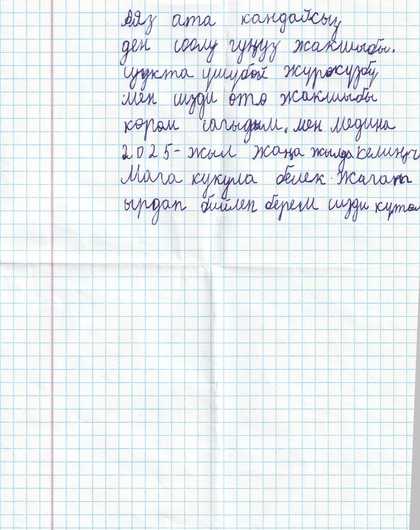 Аяз ата кандайсыз
ден соолу гуңуз жакшыбы.
суукта ушубой журосузбу
мен сизди ото жакшыбы
кором сагыдым. мен Медина
2025-жыл жаңа жылда келиңиз
Мага кукула белек жагат
ырдап бийлеп берем сизди кутом